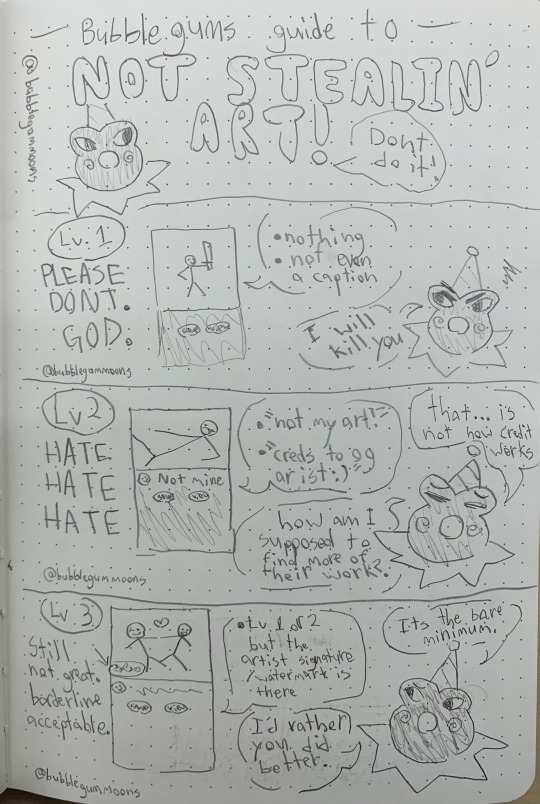 Bubblegums guide to
NOT STEALIN'
ART!
@bubblegummoons
Dont
do it!
Lv. 1
PLEASE
DONT.
GOD.
@bubblegummoons
save
view
• nothing
• not even
a caption
I will
kill you
Lv 2
HATE
HATE
HATE
@bubblegummoons
Not mine
save
view
• "not my art!"
• "creds to og
artist:)"
that... is
not how credit
works
how am I
supposed to
find more of
their work?.
Lv 3
Still
not great.
borderline
acceptable.
@bubblegummoons
save
view
• Lv 1 or 2
but the
artist signature
/watermark is
there
Its the bare
minimum.
I'd rather
you did
better.